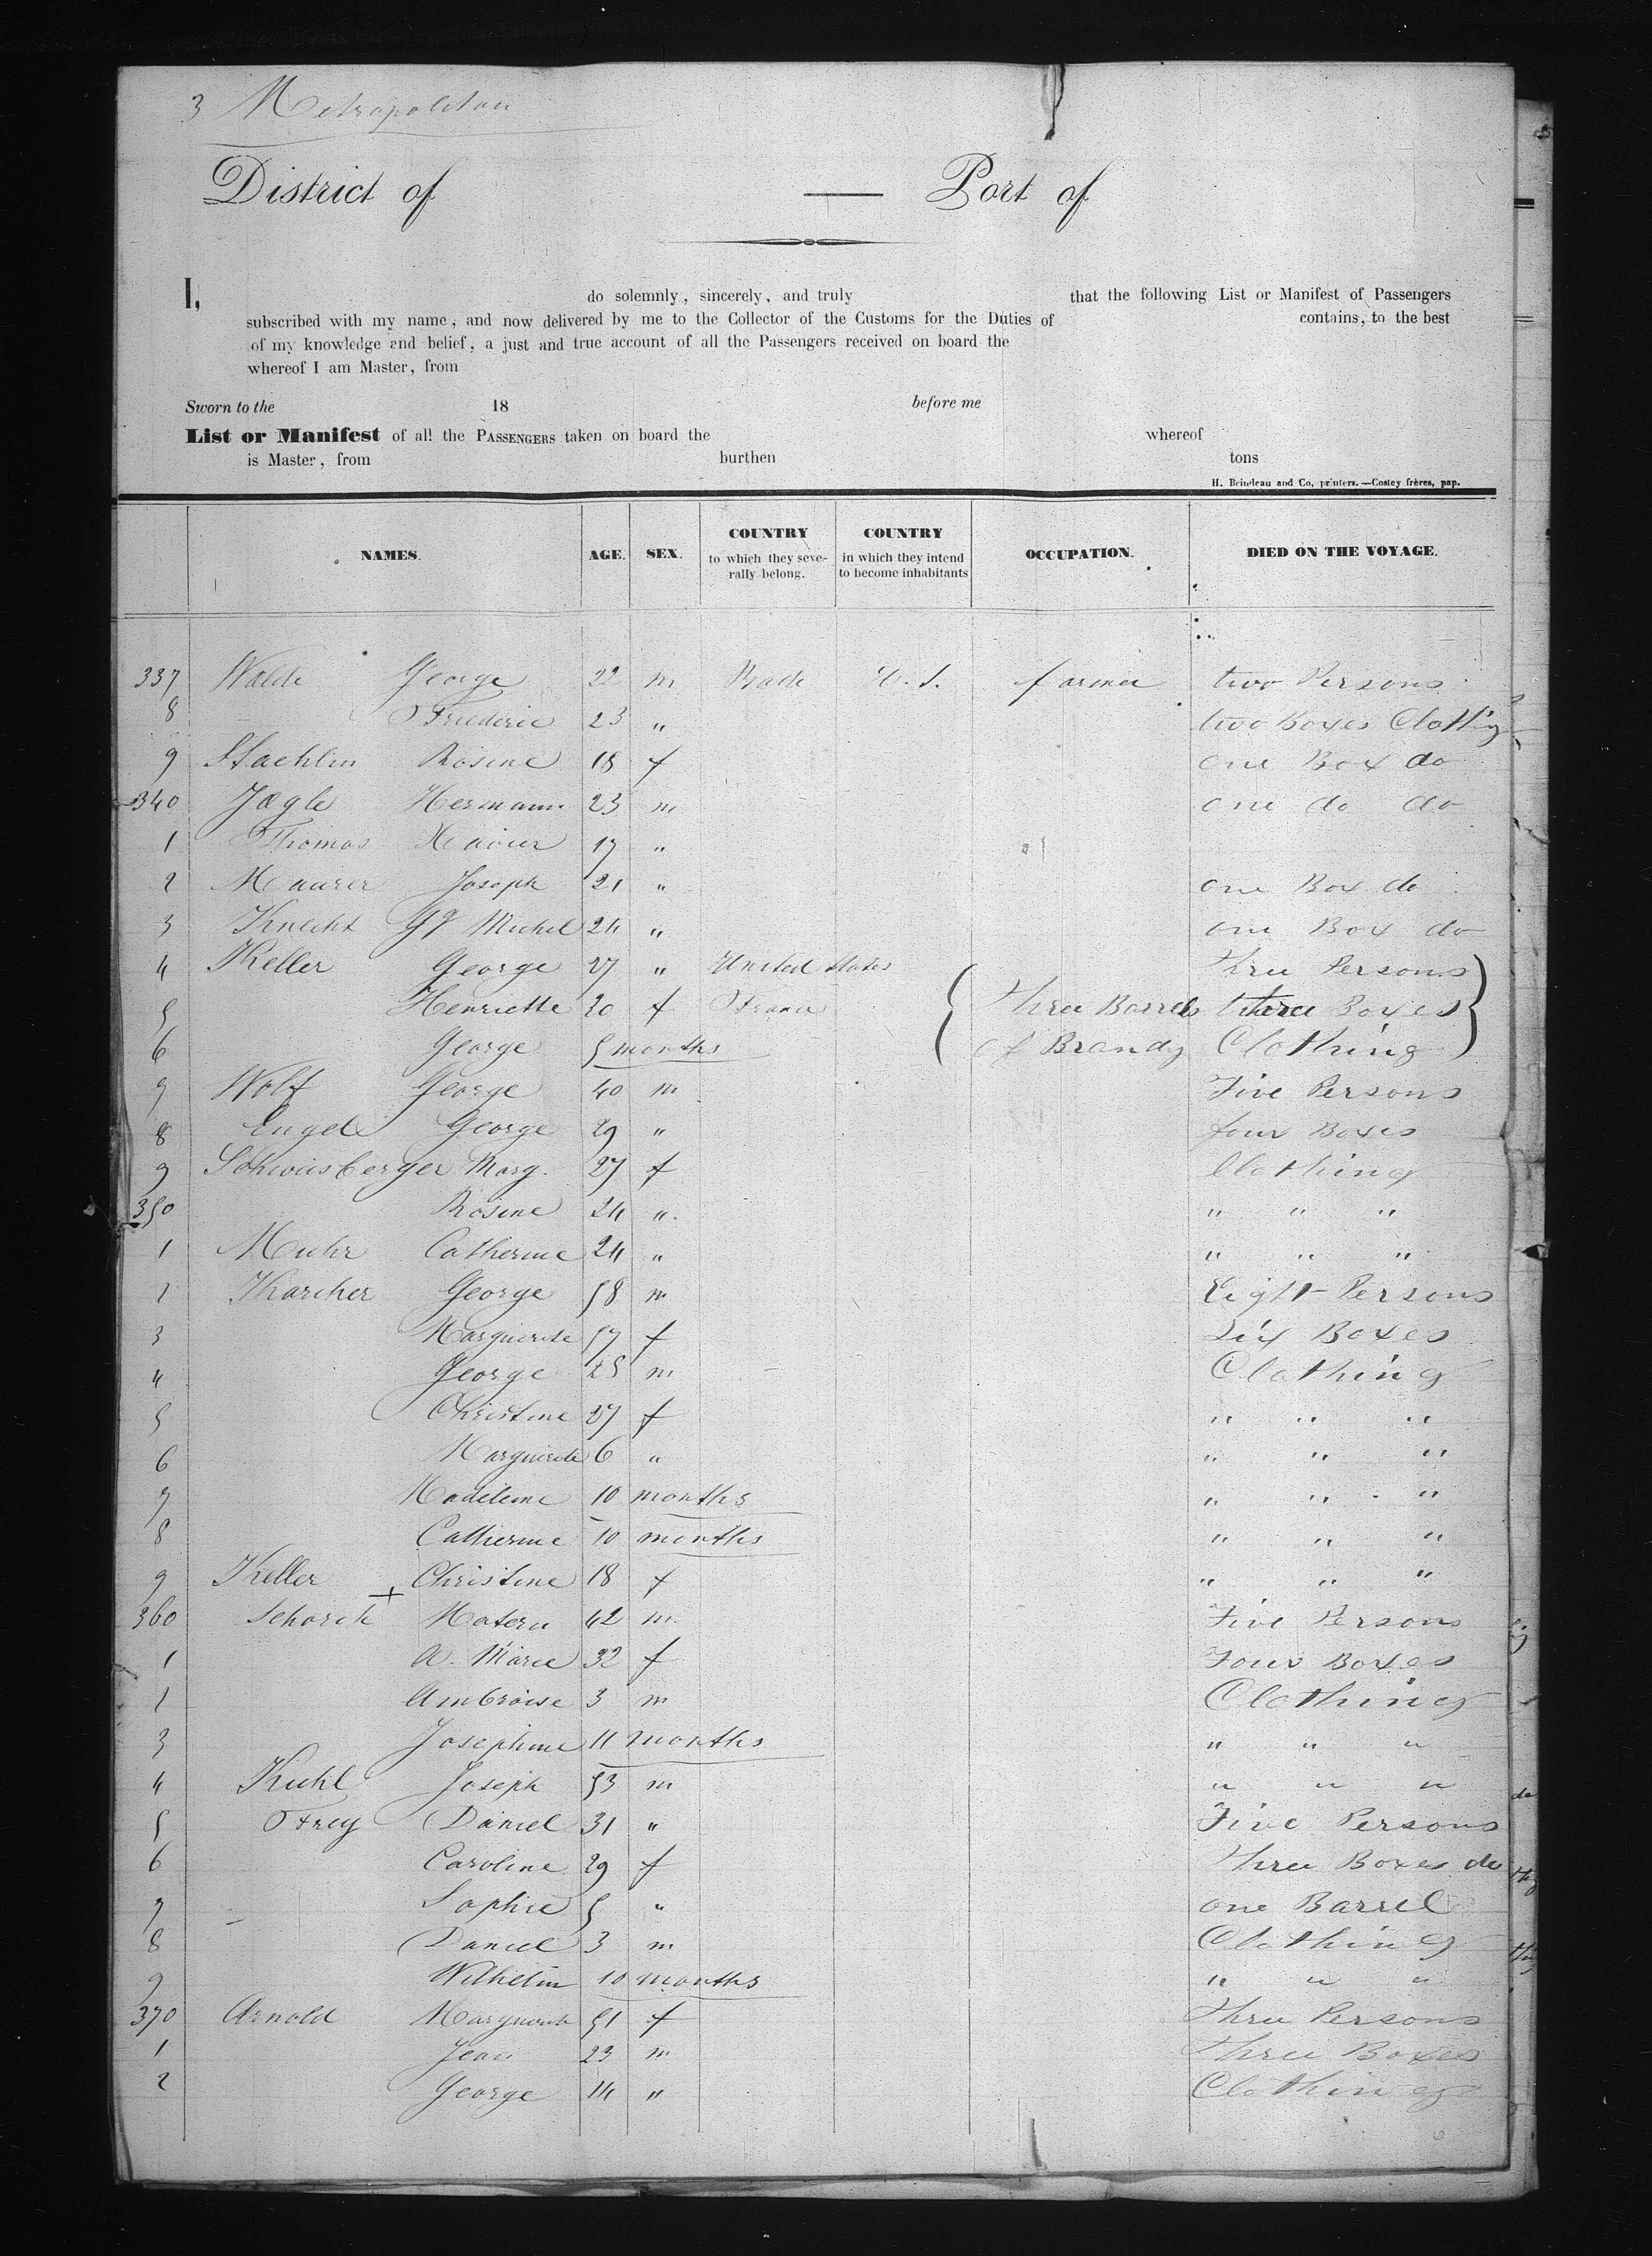 3 Metropolitan
District of — Port of
I, do solemnly, sincerely, and truly that the following List or Manifest of Passengers
subscribed with my name, and now delivered by me to the Collector of the Customs for the Duties of contains, to the best
of my knowledge and belief, a just and true account of all the Passengers received on board the
whereof I am Master, from
Sworn to the 18 before me
List or Manifest of all the PASSENGERS taken on board the whereof
is Master, from burthen tons
H. Brindeau and Co, printers.—Costey frères, pap.
NAMES. AGE. SEX. COUNTRY to which they seve- rally belong. COUNTRY in which they intend to become inhabitants OCCUPATION. DIED ON THE VOYAGE.
337 Walde George 22 m Bade U.S. farmer two Persons
8 Frederic 23 " two Boxes Clothig
9 Staehlin Rosine 18 f one Box do
340 Jægle Hermann 23 m one do do
1 Thomas Xavier 19 "
2 Maurer Joseph 21 " one Box do
3 Knecht Gg Michel 24 " one Box do
4 Keller George 27 " United States Three Persons
5 Henriette 20 f France Three Barrels three Boxes
6 George 5 months of Brandy Clothing
7 Wolf George 40 m Five Persons
8 Engel George 29 " four Boxes
9 Schweisberger Marg. 27 f Clothing
350 Rosine 24 " " " "
1 Muhr Catherine 24 " " " "
2 Karcher George 58 m Eight Persons
3 Marguerite 57 f Six Boxes
4 George 25 m Clothing
5 Christine 27 f " " "
6 Marguerite 6 " " " "
7 Madeleine 10 months " " "
8 Catherine 10 months " " "
9 Keller Christine 18 f " " "
360 Schorck + Matern 42 m Five Persons
1 A. Marie 32 f Four Boxes
2 Ambroise 3 m Clothing
3 Josephine 11 months " " "
4 Kuhl Joseph 53 m " " "
5 Frey Daniel 31 " Five Persons
6 Caroline 29 f Three Boxes do
7 Sophie 5 " one Barrel
8 Daniel 3 m Clothing
9 Wilhelm 10 months " " "
370 Arnold Marguerite 51 f Three Persons
1 Jean 23 m Three Boxes
2 George 14 " Clothing